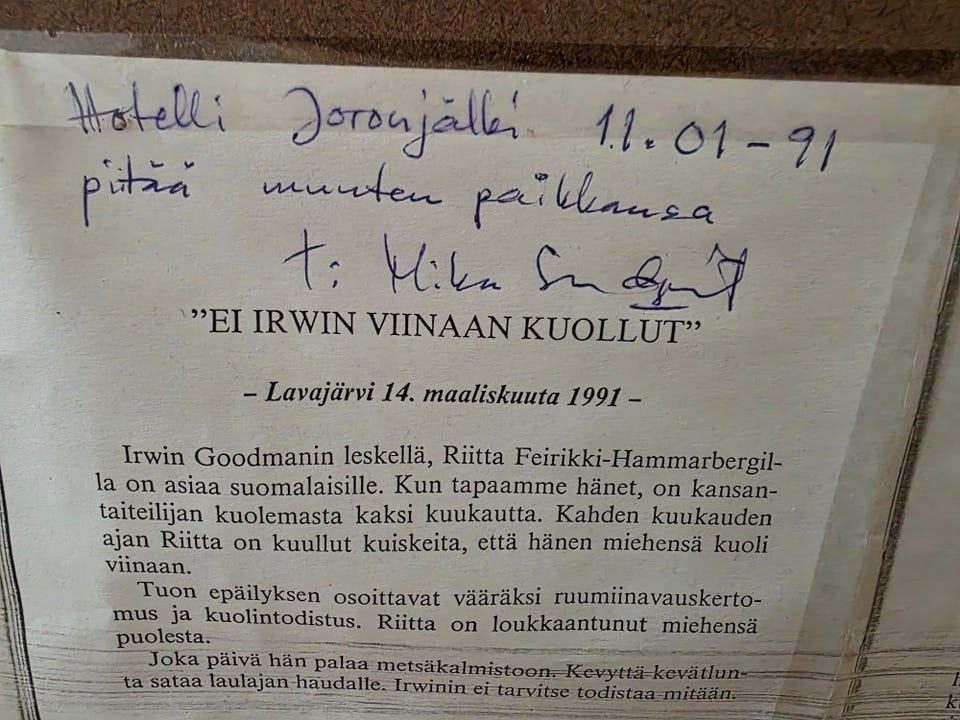 Hotelli Joronjälki 11.01-91
pitää muuten paikkansa
t: Mika
"EI IRWIN VIINAAN KUOLLUT"
– Lavajärvi 14. maaliskuuta 1991 –
Irwin Goodmanin leskellä, Riitta Feirikki-Hammarbergil-
la on asiaa suomalaisille. Kun tapaamme hänet, on kansan-
taiteilijan kuolemasta kaksi kuukautta. Kahden kuukauden
ajan Riitta on kuullut kuiskeita, että hänen miehensä kuoli
viinaan.
Tuon epäilyksen osoittavat vääräksi ruumiinavauskerto-
mus ja kuolintodistus. Riitta on loukkaantunut miehensä
puolesta.
Joka päivä hän palaa metsäkalmistoon. Kevyttä kevätlun-
ta sataa laulajan haudalle. Irwinin ei tarvitse todistaa mitään.